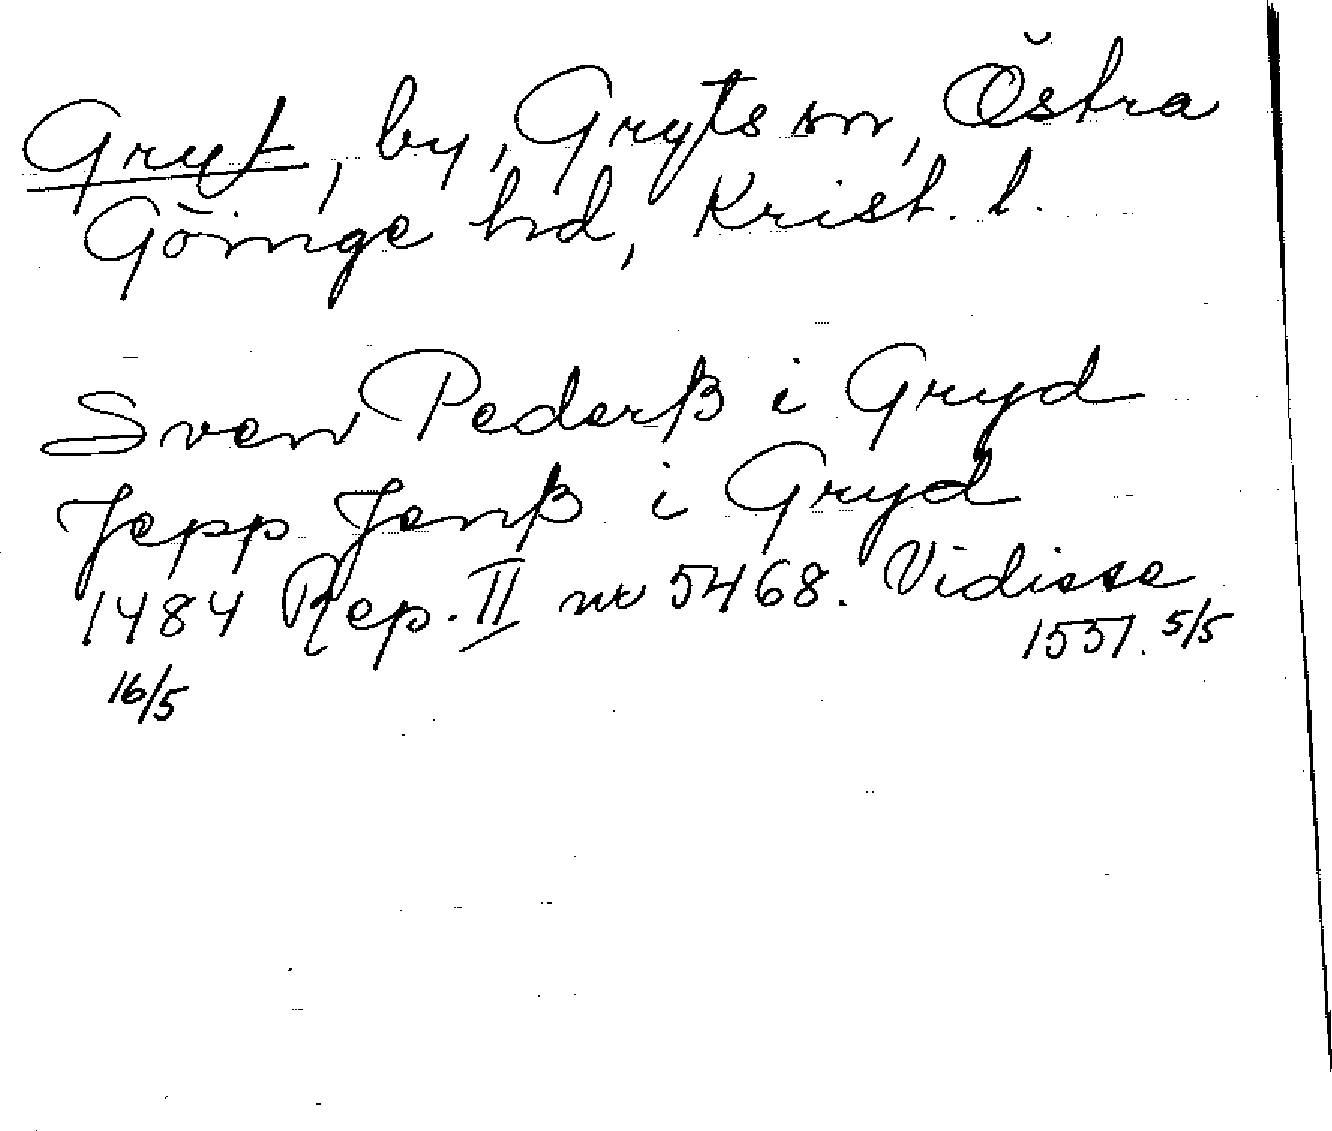 Gryt, by, Gryts sn, Östra
Göinge hd, Krist. l.
Sven Pederß i Gryd
Jepp Jenß i Gryd
1484 Rep. II nr 5468. Vidisse
16/5 1551. 5/5